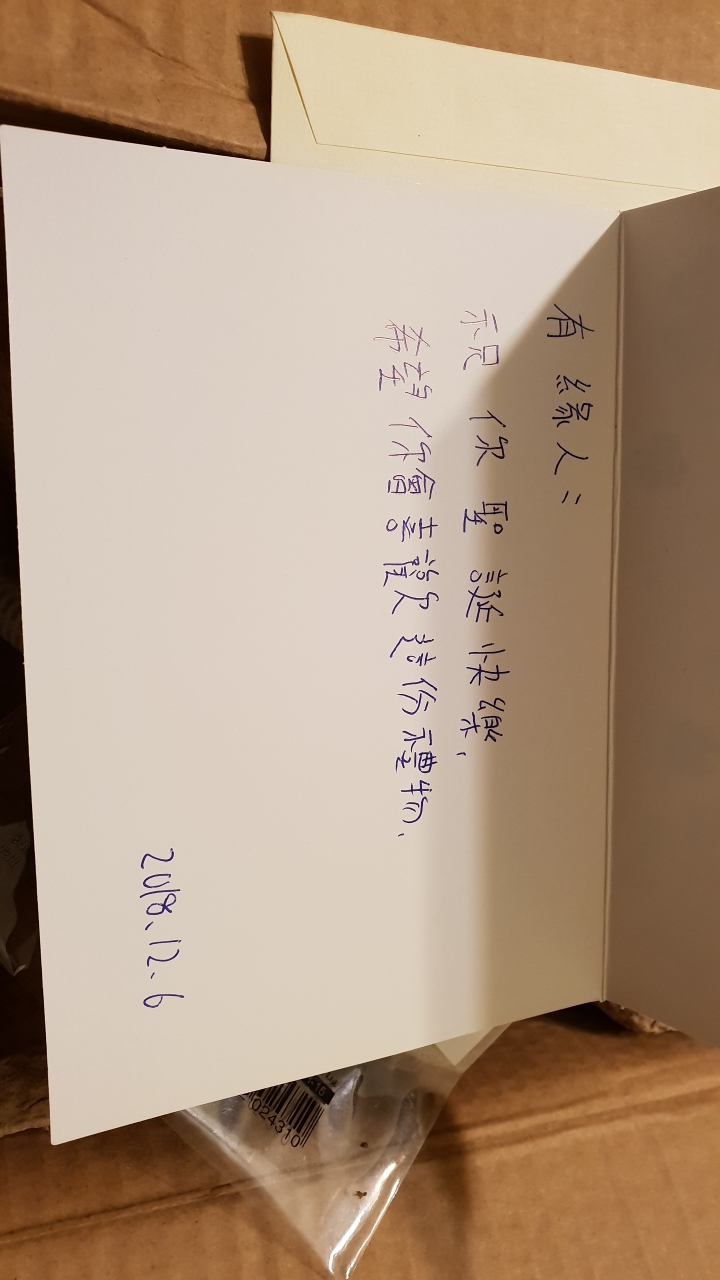 有緣人:
祝你聖誕快樂,
希望你會喜歡這份禮物.
2018.12.6
024310